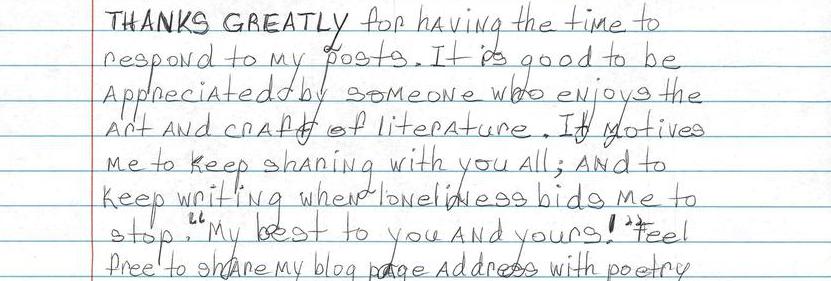 THANKS GREATLY for having the time to
respond to my posts. It is good to be
Appreciated by someone who enjoys the
Art And craft of literature. It motives
me to keep sharing with you All; And to
keep writing when loneliness bids me to
stop. "My best to you And yours!" Feel
free to share my blog page Address with poetry